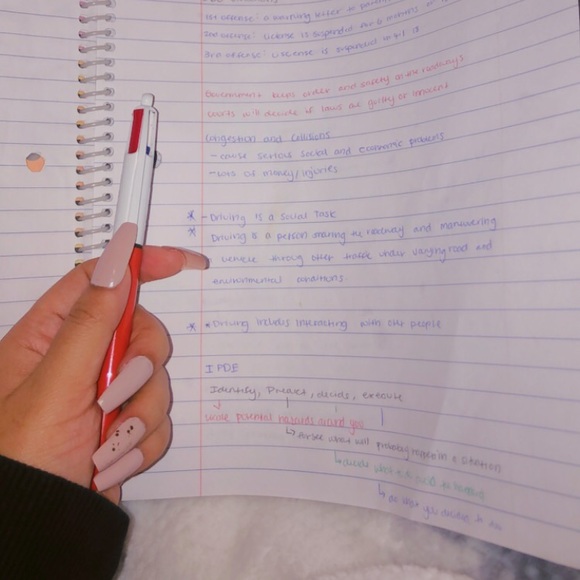 1st offense: a warning letter to parent
2nd offense: license is suspended for 6 months or
3rd offense: license is suspended till 18
Government keeps order and safety on the roadways
courts will decide if laws are guilty or innocent
Congestion and Collisions
- cause serious social and economic problems
- lots of money/injuries
* - Driving is a social task
* Driving is a person sharing the roadway and maneuvering
a vehicle through other traffic under varying road and
environmental conditions.
* • Driving includes interacting with other people
IPDE
Identify, Predict, decide, execute
potential hazards around you
↳ forsee what will probably happen in a situation
↳ decide what
↳ do what you decide to do